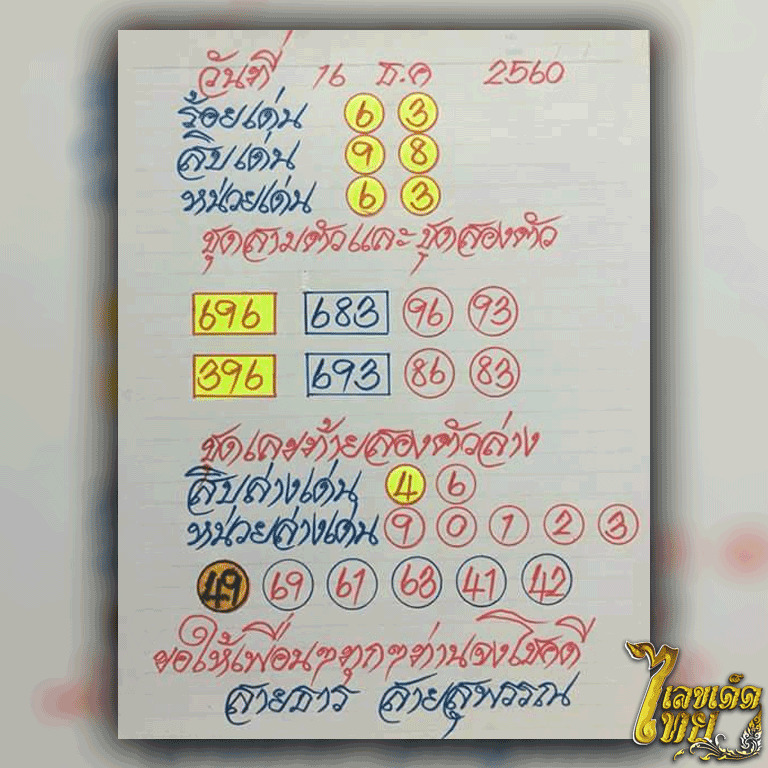 วันที่ 16 ธ.ค 2560
ร้อยเด่น 6 3
สิบเด่น 9 8
หน่วยเด่น 6 3
ชุดสามตัวและชุดสองตัว
696 683 96 93
396 693 86 83
ชุดเลขท้ายสองตัวล่าง
สิบล่างเด่น 4 6
หน่วยล่างเด่น 9 0 1 2 3
49 69 61 63 41 42
ขอให้เพื่อนๆทุกๆท่านจงโชคดี
สายธาร สายสุพรรณ
เลขเด็ด
ไทย